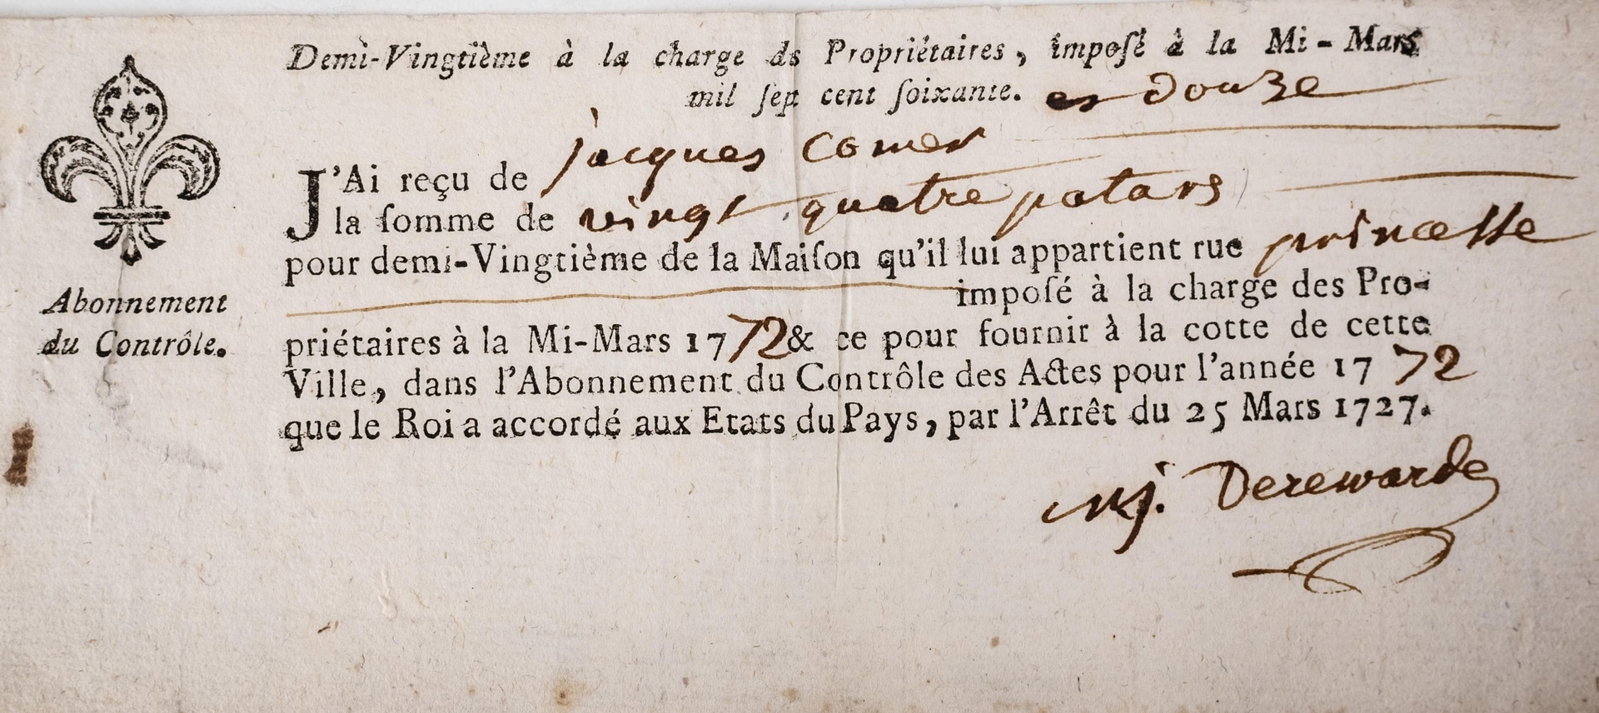 Demi-Vingtième à la charge ds Propriétaires, imposé à la Mi-Mars
mil sep cent soixante. et douze
Abonnement
du Contrôle.
J'Ai reçu de jacques Comer
la somme de vingt quatre patars
pour demi-Vingtième de la Maison qu'il lui appartient rue princesse
imposé à la charge des Pro-
priétaires à la Mi-Mars 1772 & ce pour fournir à la cotte de cette
Ville, dans l'Abonnement du Contrôle des Actes pour l'année 1772
que le Roi a accordé aux Etats du Pays, par l'Arrêt du 25 Mars 1727.
Mj. Derewarde